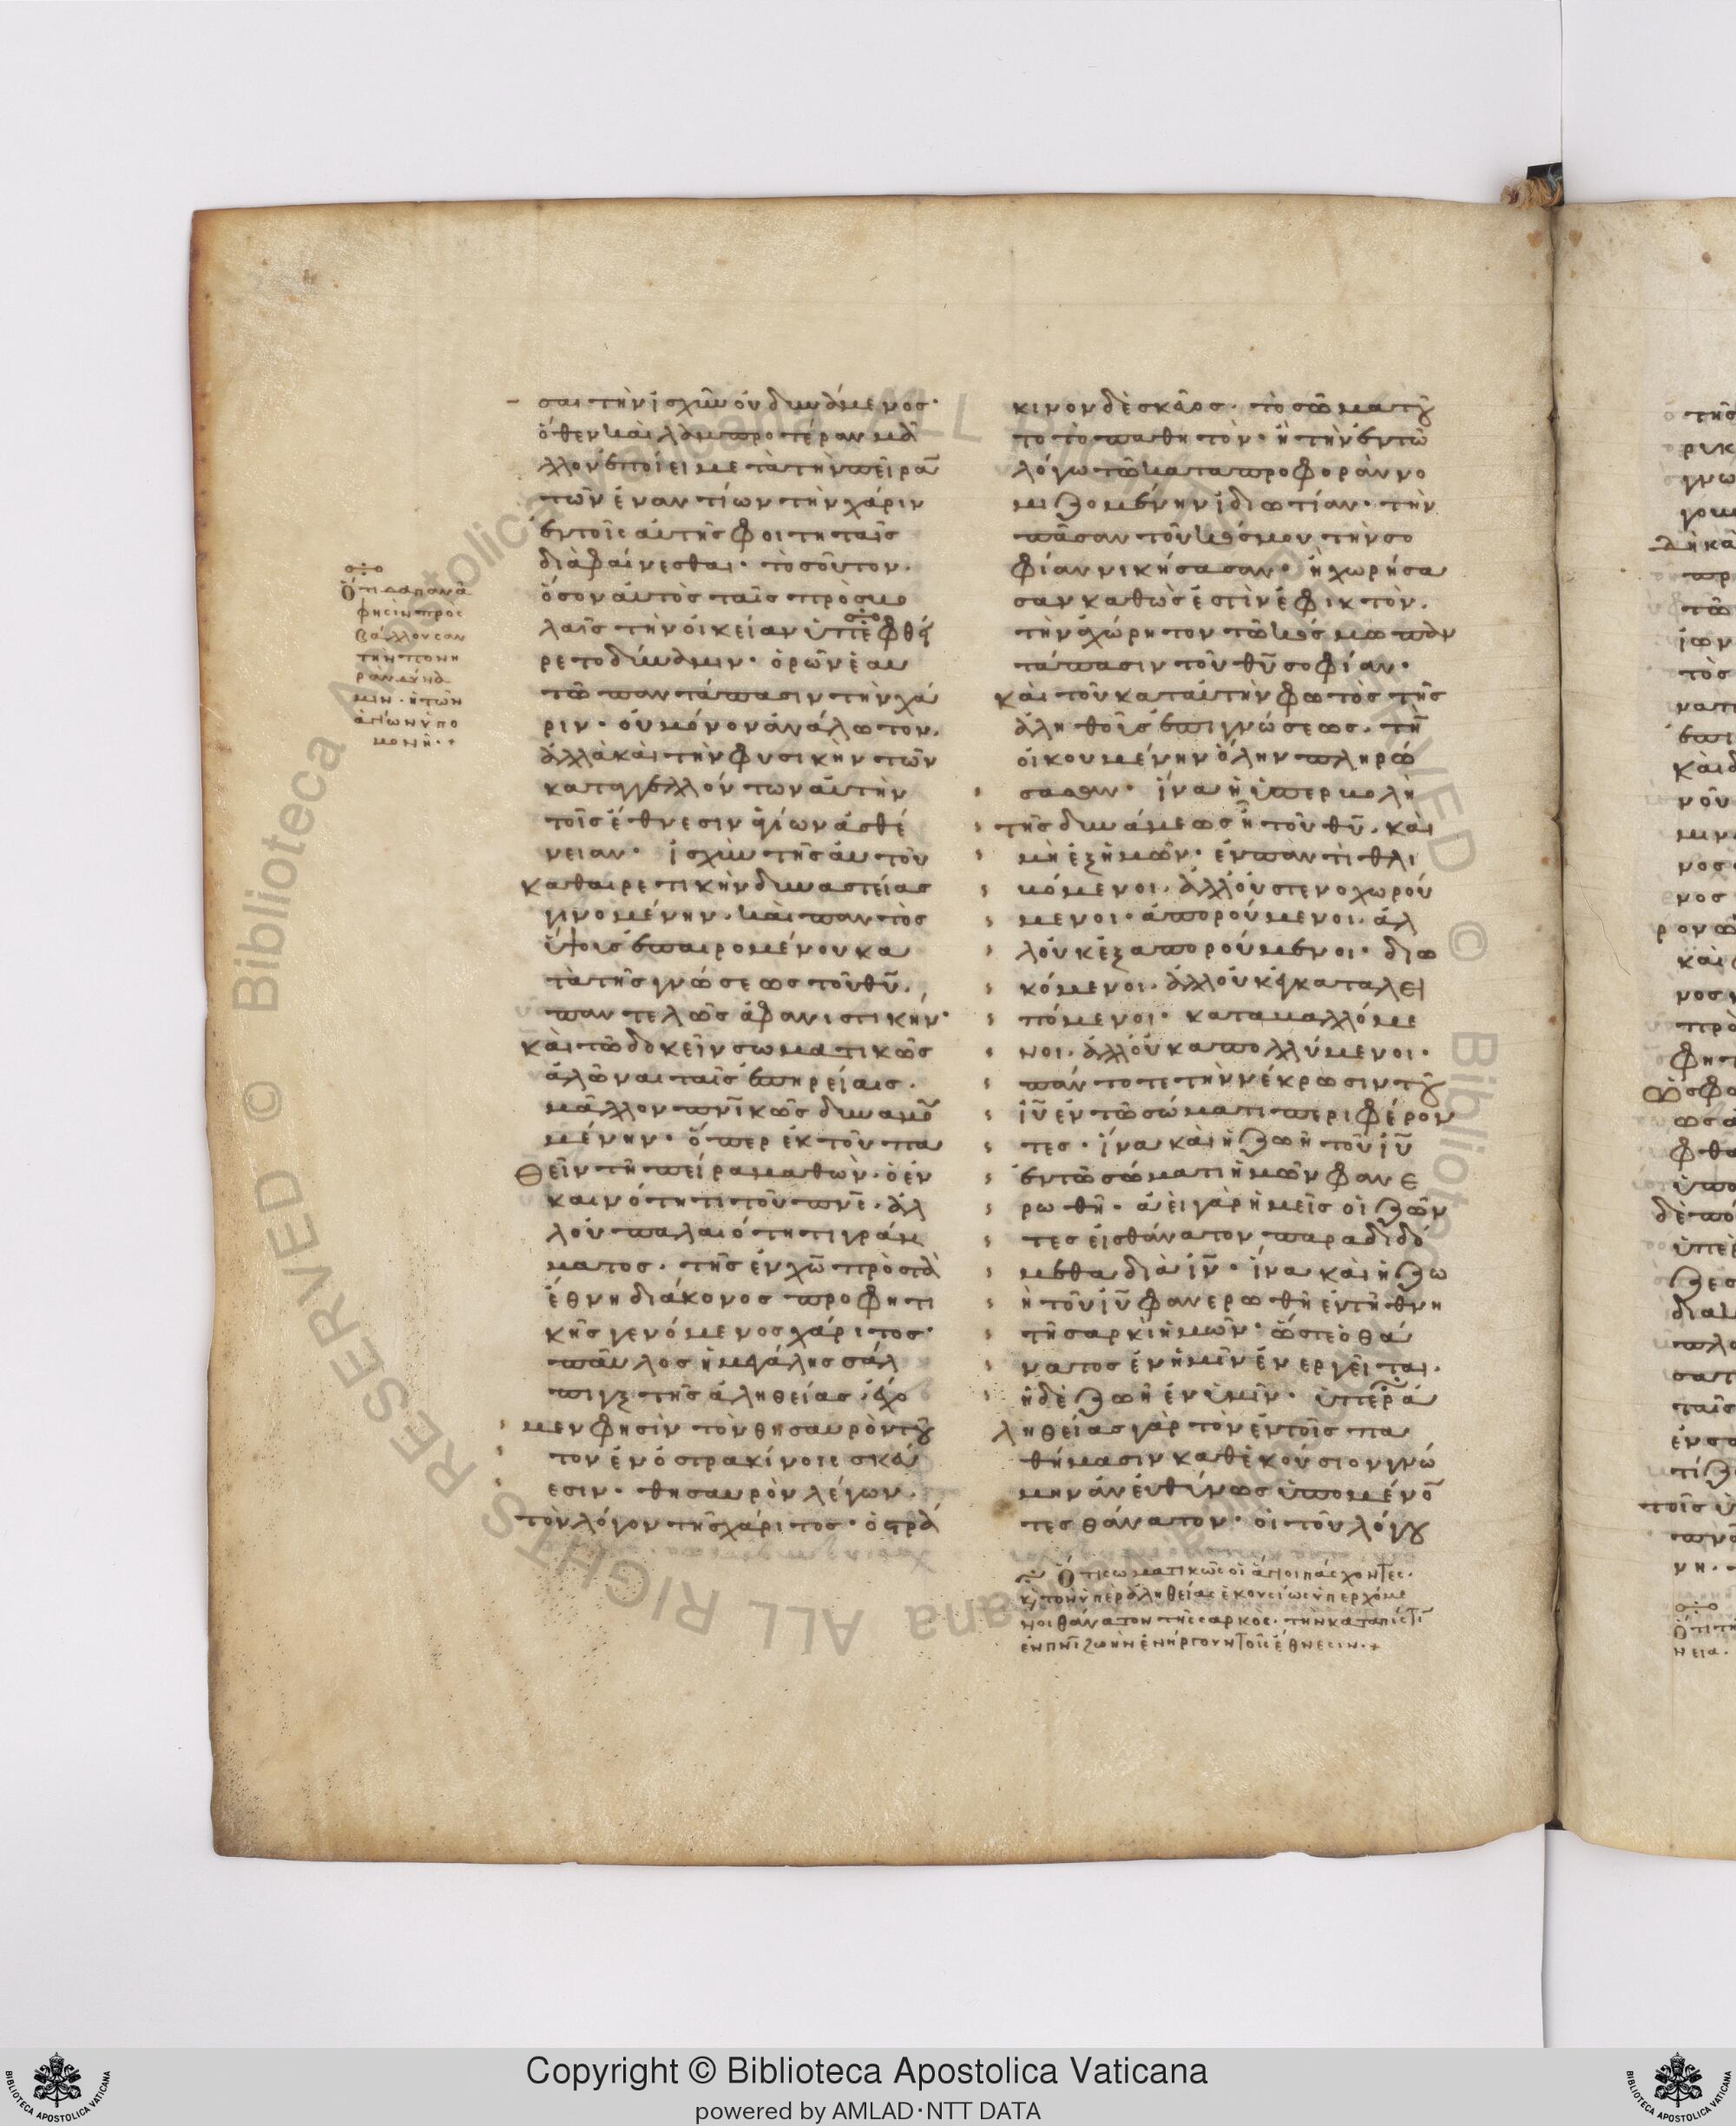 σαι τὴν ἰσχὺν οὐ δυνάμενος·
ὅθεν καὶ λαμπροτέραν μᾶ
λλον ἐποίει μετὰ τὴν πεῖρᾱ
τῶν ἐναντίων τὴν χάριν
ἐν τοῖς αὐτῆς φοιτηταῖς
διαφαίνεσθαι· τοσοῦτον.
ὅσον αὐτὸς ταῖς προσβο
λαῖς τὴν οἰκείαν ὑπεφθεί
ρετο δύναμιν· ὁρῶν ἑαυ
τῶ παντάπασιν τὴν χά
ριν· οὐ μόνον ἀνάλωτον.
ἀλλὰ καὶ τὴν φυσικὴν τῶν
καταγγελλόντων αὐτὴν
τοῖς ἔθνεσιν ἁγίων ἀσθέ
νειαν· ἰσχὺν τῆς αὐτοῦ
καθαιρετικὴν δυναστείας
γινομένην. καὶ παντὸς
ὕψους ἐπαιρομένου κα
τὰ τῆς γνώσεως τοῦ θυ̅.
παντελῶς ἀφανιστικήν·
καὶ τῶ δοκεῖν σωματικῶς
ἁλῶναι ταῖς ἐπηρείαις.
μᾶλλον πνι̅κῶς δυναμου
μένην· ὅπερ ἐκ τοῦ πα
θεῖν τῆ πείρα μαθὼν. ὁ ἐν
καινότητι τοῦ πνς̅. ἀλ
λ' οὐ παλαιότητι γράμ
ματος. τῆς ἐν χω̅ πρὸς τὰ
ἔθνη διάκονος προφητι
κῆς γενόμενος χάριτος·
παῦλος ἡ μεγάλης σάλ
πιγξ τῆς ἀληθείας. ἔχο
μεν φησὶν τὸν θησαυρὸν τοῦ
τον ἐν ὀστρακίνοις σκεύ
εσιν· θησαυρὸν λέγων.
τὸν λόγον τῆς χάριτος· ὀστρά
Ὅτι δαπανᾶ
φησὶν προσ
βάλλουσαν
τὴν πονη
ρὰν δύνα
μιν. ἡ τῶν
ἁγίων ὑπο
μονή·+
κινον δὲ σκεῦος. τὸ σῶμα τοῦ
το τὸ παθητὸν· ἢ τὴν ἐν τῶ
λόγω τῶ κατὰ προφορὰν νο
μιζομένην ἰδιωτίαν· τὴν
πᾶσαν τοῦ κόσμου τὴν σο
φίαν νικήσασαν· ἢ χωρήσα
σαν καθὼς ἐστὶν ἐφικτὸν.
τὴν ἀχώρητον τῶ κόσμω παν
τάπασιν τοῦ θυ̅ σοφίαν·
καὶ τοῦ κατ' αὐτὴν φωτὸς τῆς
ἀληθοῦς ἐπιγνώσεως. τὴν
οἰκουμένην ὅλην πληρώ
σασαν· ἵνα ἡ ὑπερβολὴ
τῆς δυνάμεως ἦ τοῦ θυ̅. καὶ
μὴ ἐξ ἡμῶν· ἐν παντὶ θλι
βόμενοι. ἀλλ' οὐ στενοχωρού
μενοι· ἀπορούμενοι. ἀλ
λ' οὐκ ἐξαπορούμενοι· διω
κόμενοι. ἀλλ' οὐκ ἐγκαταλει
πόμενοι· καταβαλλόμε
νοι. ἀλλ' οὐκ ἀπολλύμενοι·
πάντοτε τὴν νέκρωσιν τοῦ
ιυ̅ ἐν τῶ σώματι περιφέρον
τες· ἵνα καὶ ἡ ζωὴ τοῦ ιυ̅
ἐν τῶ σώματι ἡμῶν φανε
ρωθῆ· ἀεὶ γὰρ ἡμεῖς οἱ ζῶν
τες εἰς θάνατον παραδιδό
μεθα διὰ ιν̅· ἵνα καὶ ἡ ζω
ὴ τοῦ ιυ̅ φανερωθῆ ἐν τῆ θνη
τῆ σαρκὶ ἡμῶν· ὥστε ὁ θά
νατος ἐν ἡμῖν ἐνεργεῖται.
ἡ δὲ ζωὴ ἐν ὑμῖν· ὑπὲρ ἀ
ληθείας γὰρ τὸν ἐν τοῖς πα
θήμασιν καθ' ἑκούσιον γνώ
μην ἀνευθύνως ὑπομένον
τες θάνατον· οἱ τοῦ λόγου
Ὅτι σωματικῶς οἱ ἅγιοι πάσχοντες.
κ, τὸν ὑπὲρ ἀληθείας ἑκουσίως ὑπερχόμε
νοι θάνατον τῆς σαρκός. τὴν κατὰ πίστιν
ἐν πνι̅ ζωὴν ἐνήργουν τοῖς ἔθνεσιν·+
Copyright © Biblioteca Apostolica Vaticana
powered by AMLAD·NTT DATA